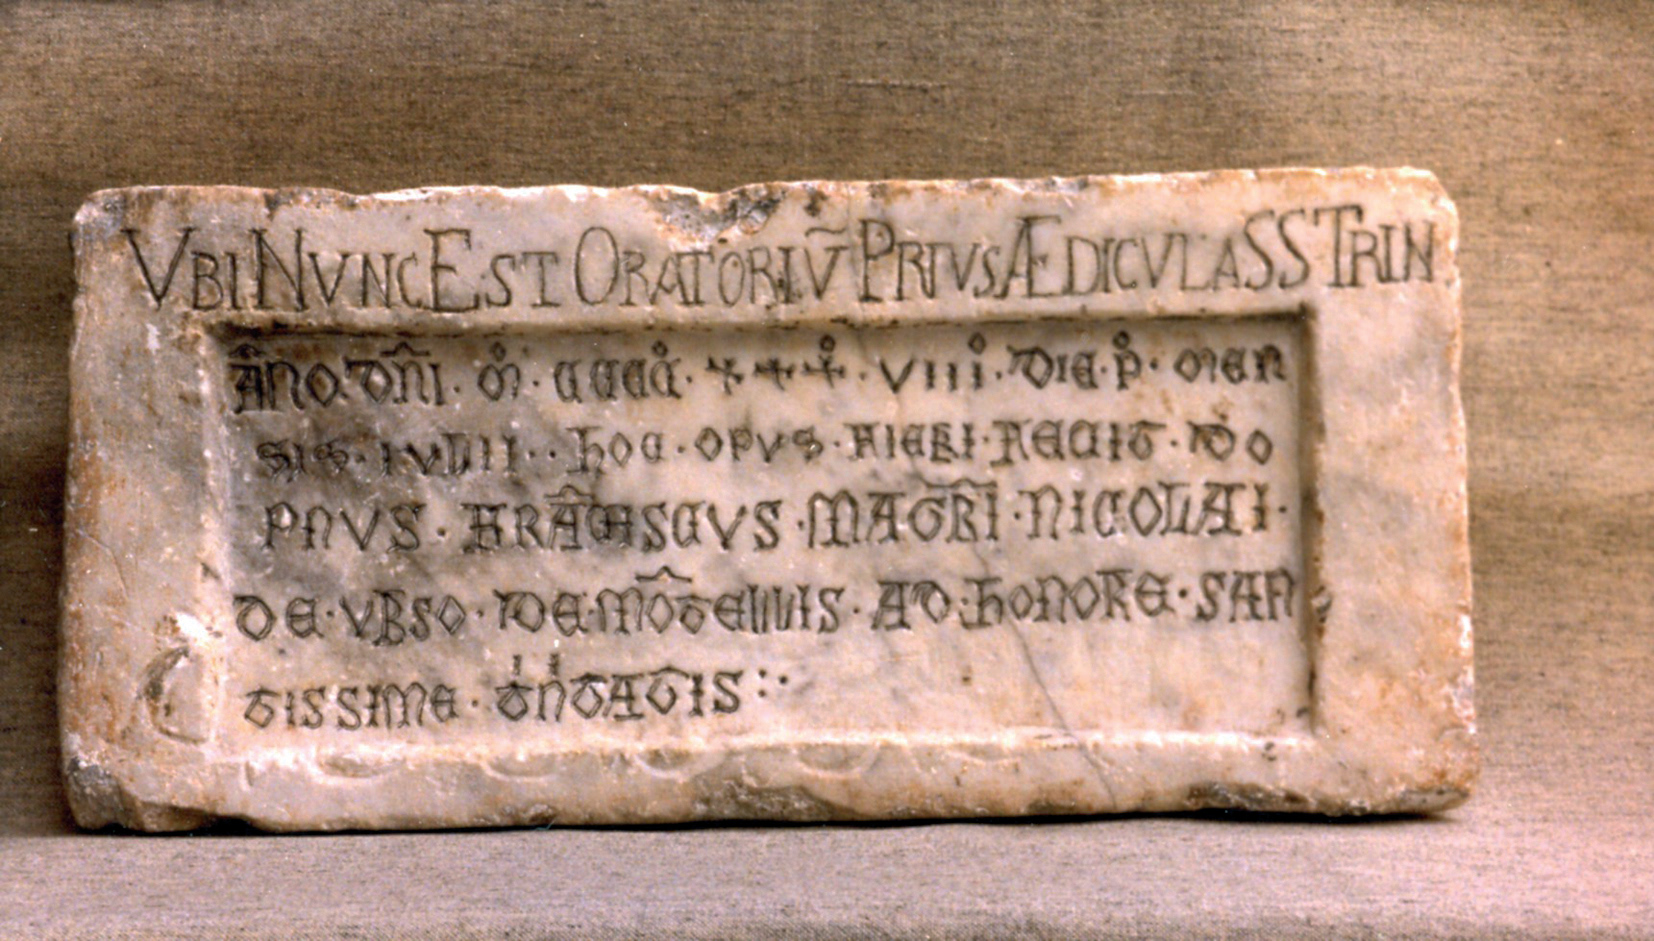 VBI NVNC EST ORATORIŪ PRIVS ÆDICVLA SS TRIN
ANO · DNI · Mº · CCCCº · XXXº · VIIIº · DIE · Pº · MEN
SIS · IVLII · · HOC · OPVS · FIERI · FECIT · DO
PNVS · FRACISCVS · MAGRI · NICOLAI ·
DE · VRSO · DE · MOTELLIS · AD · HONORE · SAN
TISSIME · TNTATIS